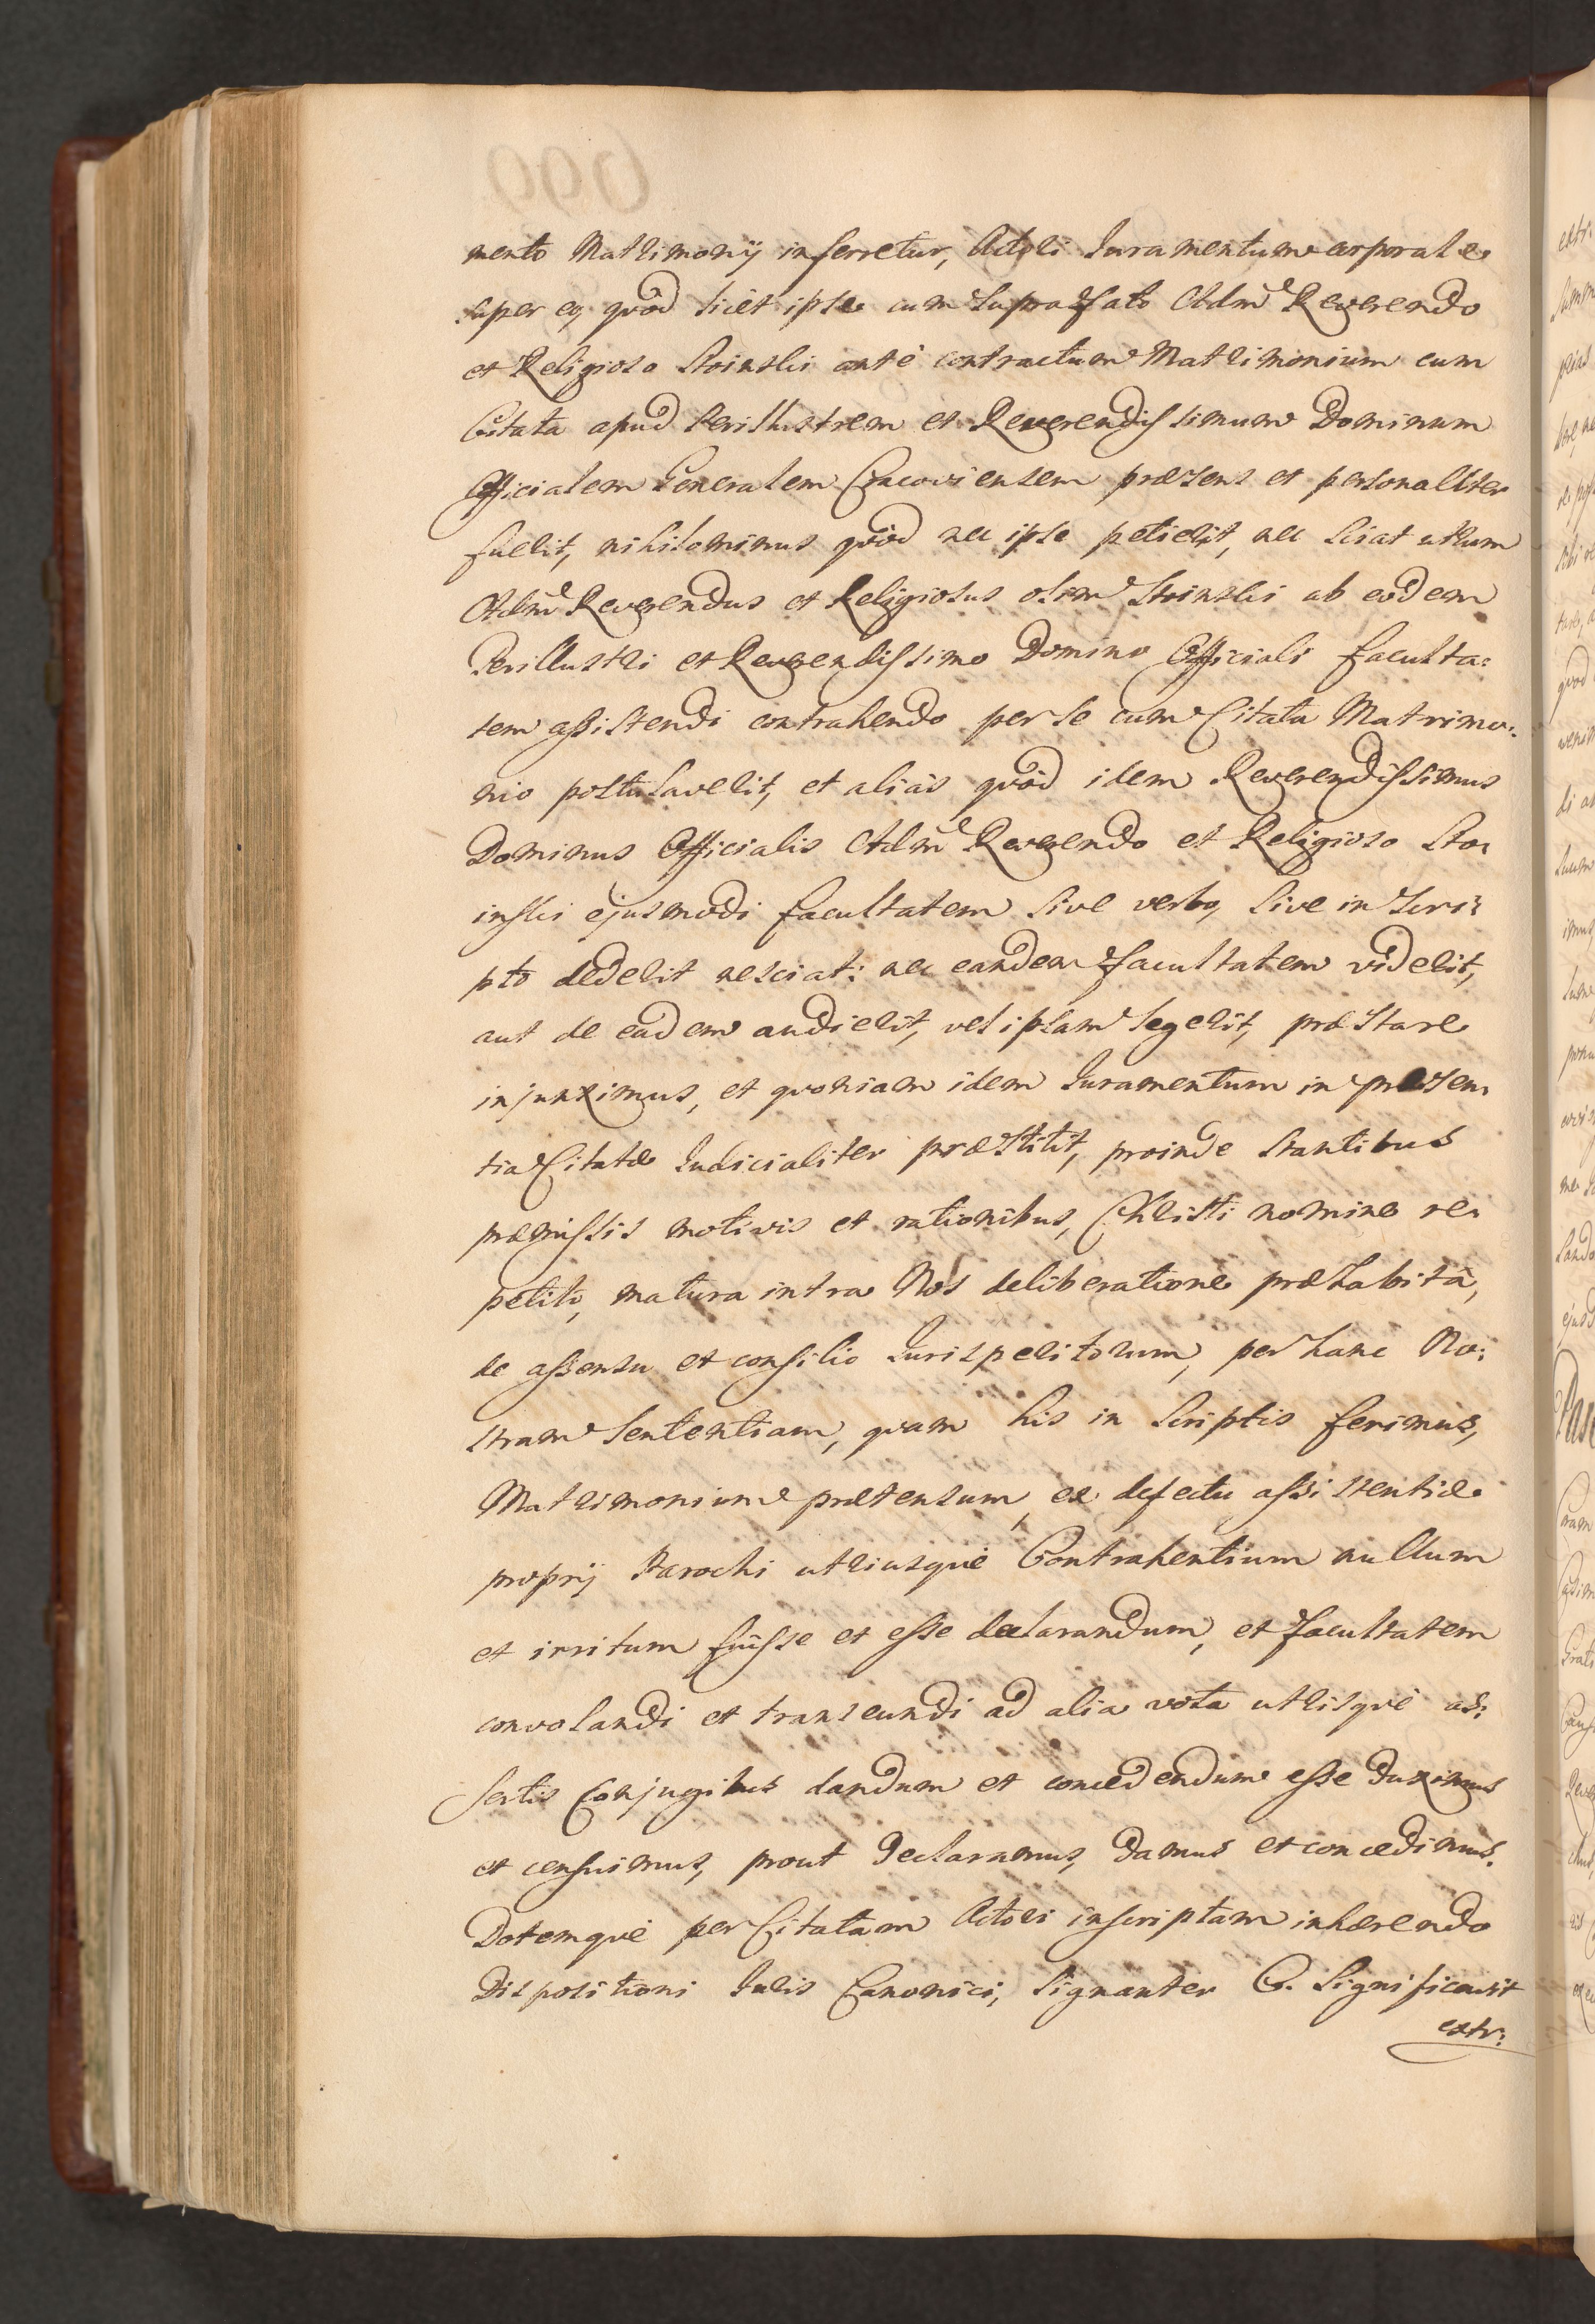 mento Matrimonÿ inferretur, Actori Juramentum corporale
super eo, quod licet ipse cum supra fato Adm Reverendo
et Religioso Stoinski antè contractum Matrimonium cum
Citata apud Perillustrem et Reverendissimum Dominum
Officialem Generalem Cracoviensem præsens et personaliter
fuerit, nihilominus quod nec ipse petierit, nec sciat utrum
Adm Reverendus et Religiosus olim Stoinski ab eodem
Perillustri et Reverendissimo Domino Officiali faculta:
tem assistendi contrahendo per se cum Citata Matrimo:
nio postulaverit, et aliàs quod idem Reverendissimus
Dominus Officialis Adm Reverendo et Religioso Sto:
inski ejusmodi facultatem sive verbo, sive in scri:
pto dederit nesciat: nec eandem facultatem viderit,
aut de eadem audierit, vel ipsam legerit, præstare
injunximus, et quoniam idem Juramentum in præsen:
tia Citatæ Judicialiter præstitit, proinde stantibus
præmissis motivis et rationibus, Christi nomine re:
petito, matura intra Nos deliberatione præhabità,
de assensu et consilio Jurisperitorum, per hanc No:
stram Sententiam, quam his in scriptis ferimus,
Matrimonium prætensum, ex defectu assistentiæ
proprÿ Parochi utriusquè Contrahentium nullum
et irritum fuisse et esse declarandum, et facultatem
convolandi et transeundi ad alia vota utrisquè as:
sertis Conjugibus dandum et concedendum esse duximus
et censuimus, prout declaramus, damus et concedimus.
Dotemquè per Citatam Actori inscriptam inhærendo
Dispositioni Juris Canonici, signanter C. Significavit
extr: